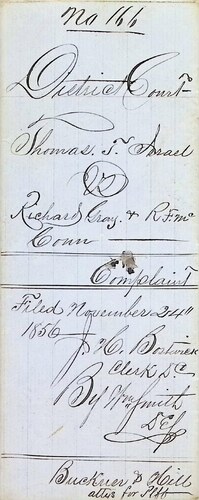 No 166
District Court
Thomas. T. Israel
vs
Richard Gray. & R. F. Mc
Conn
Complaint
Filed November 24"
1856
J. H. Bostwick
Clerk D.C.
By Wm Smith
D.C.
Buckner & Hill
attys for Plff